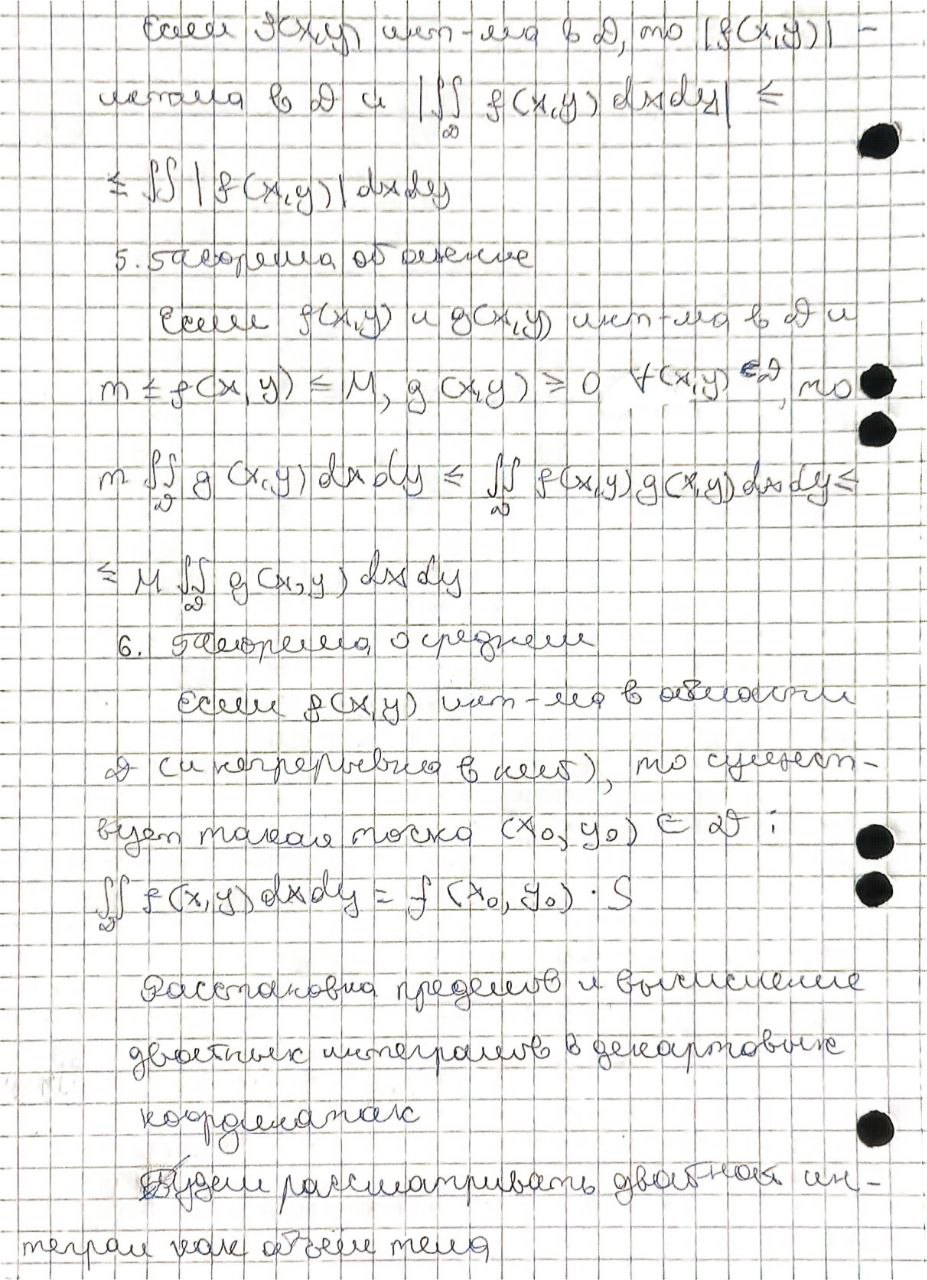 Если f(x,y) инт-ма в D, то |f(x,y)| –
инт-ма в D и |∬_D f(x,y) dxdy| ≤
≤ ∬ |f(x,y)| dxdy
5. Теорема об оценке
Если f(x,y) и g(x,y) инт-ма в D и
m ≤ f(x,y) ≤ M, g(x,y) ≥ 0 ∀(x,y) ∈ D, то
m ∬_D g(x,y) dxdy ≤ ∬_D f(x,y) g(x,y) dxdy ≤
≤ M ∬_D g(x,y) dxdy
6. Теорема о среднем
Если f(x,y) инт-ма в области
D (и непрерывна в ней), то сущест-
вует такая точка (x₀, y₀) ∈ D :
∬_D f(x,y) dxdy = f(x₀, y₀) · S
Расстановка пределов и вычисление
двойных интегралов в декартовых
координатах
Будем рассматривать двойной ин-
теграл как объём тела